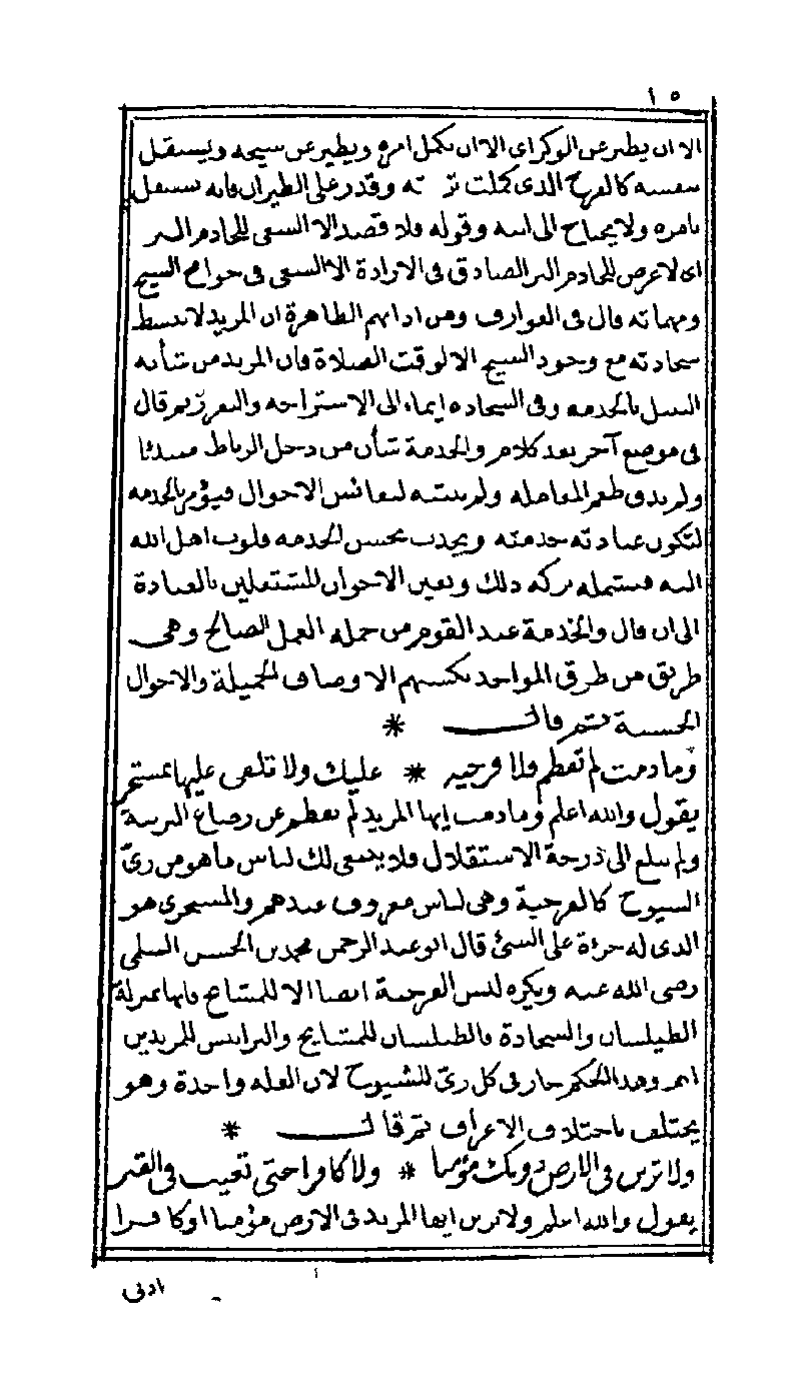 ١٥
الا ان يطير عن الوكر اى الا ان يكمل امره ويطير عن شيخه ويستقل
بنفسه كالفرخ الذى كملت تربيته وقدر على الطيران فانه يستقل
بامره ولا يحتاج الى ابيه وقوله فلا قصد الا السعى للخادم البر
اى لا غرض للخادم البر الصادق فى الارادة الا السعى فى حوائج الشيخ
ومهماته قال فى العوارف ومن ادابهم الظاهرة ان المريد لا يبسط
سجادته مع وجود الشيخ الا لوقت الصلاة فان المريد من شأنه
التبتل بالخدمه وفى السجاده ايماء الى الاستراحه والتعزز ثم قال
فى موضع آخر بعد كلام والخدمة شأن من دخل الرباط مبتدئا
ولم يذق طعم المعامله ولم يتنبه لنفائس الاحوال فيؤمر بالخدمه
لتكون عبادته خدمته ويجذب بحسن الخدمه قلوب اهل الله
اليه فتشمله بركه ذلك ويعين الاخوان المشتغلين بالعبادة
الى ان قال والخدمة عند القوم من جمله العمل الصالح وهى
طريق من طرق المواجد تكسبهم الاوصاف الجميلة والاحوال
الحسنة ثم قال *
وما دمت لم تفطم فلا فرجيه * عليك ولا تلفى عليها بمستجر
يقول والله اعلم وما دمت ايها المريد لم تفطم عن رضاع التربية
ولم تبلغ الى درجة الاستقلال فلا ينبغى لك لباس ما هو من زىّ
الشيوخ كالفرجية وهى لباس معروف عندهم والمستجرى هو
الذى له جرأة على الشئ قال ابو عبد الرحمن محمد بن الحسن السلمى
رضى الله عنه ويكره لبس الفرجية ايضا الا للمشايخ فانها بمنزلة
الطيلسان والسجادة فالطيلسان للمشايخ والبرانس للمريدين
انتهى وهذا الحكم جار فى كل زىّ للشيوخ لان العله واحدة وهو
يختلف باختلاف الاعراف ثم قال *
ولا ترين فى الارض دونك مؤمنا * ولا كافرا حتى تغيب فى القبر
يقول والله اعلم ولا ترين ايها المريد فى الارض مؤمنا او كافرا
ادنى